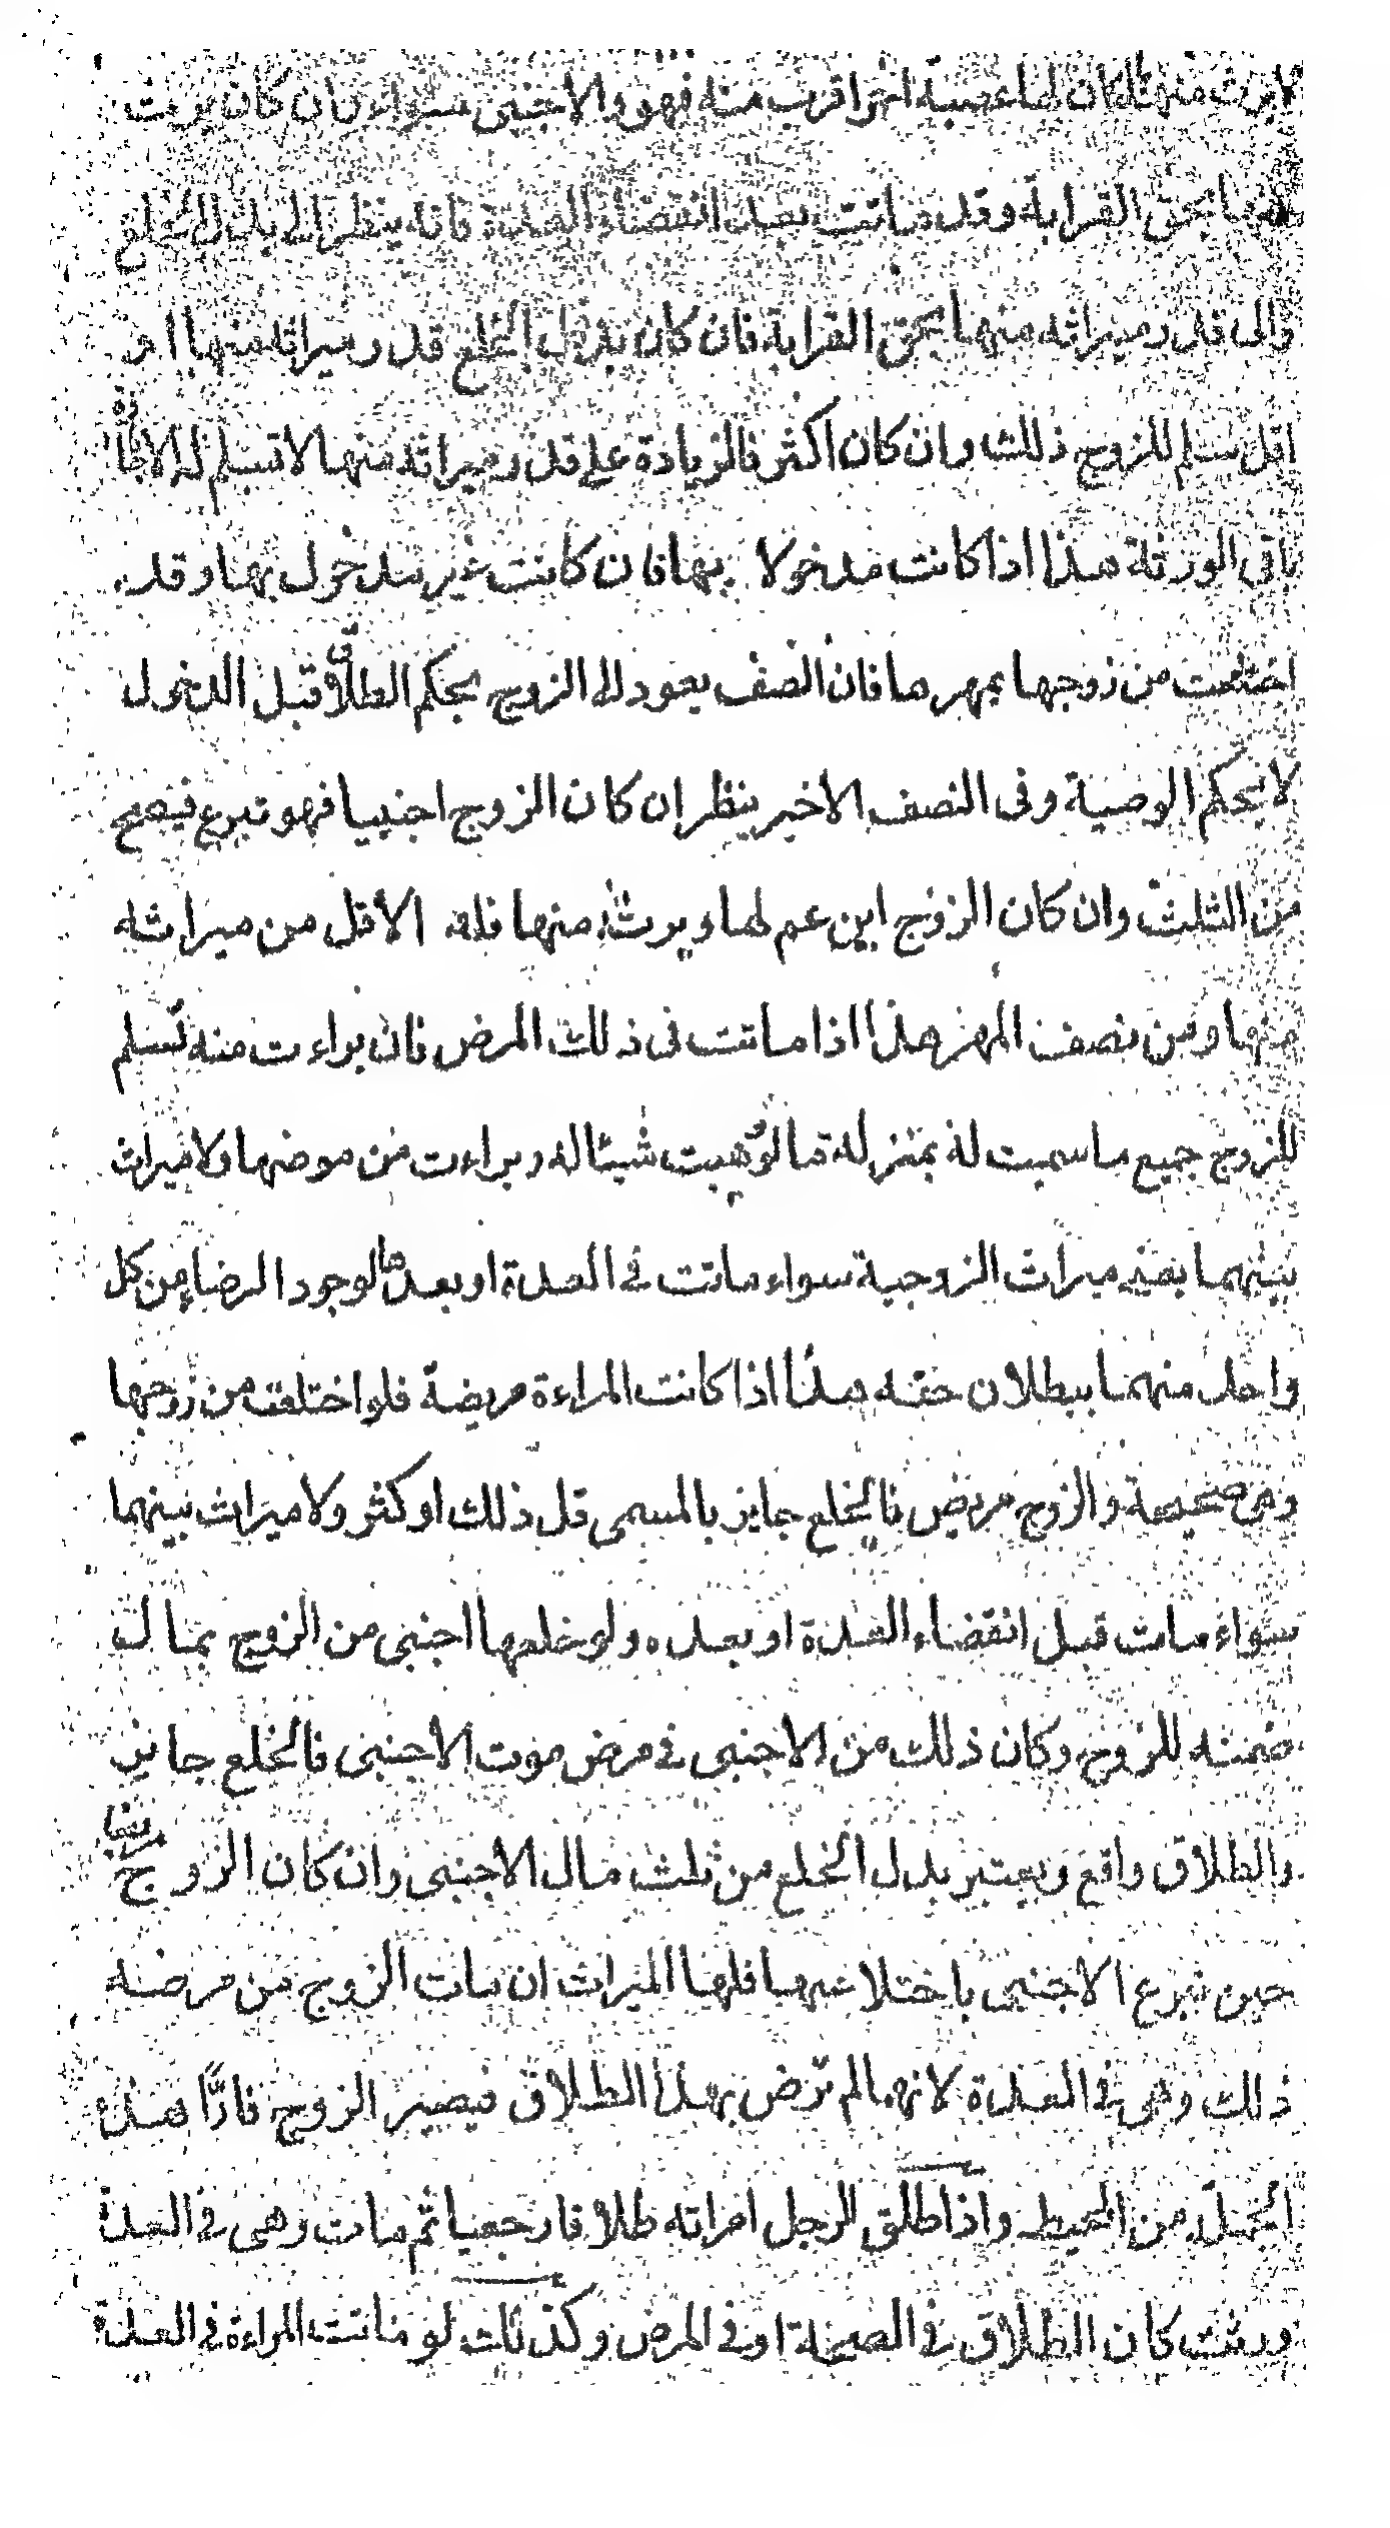 لا يرث منها بان كان لها عصبة اخر اقرب منه فهو والاجنبى سواء وان كان يرث
منها بحق القرابة وقد ماتت بعد انقضاء العدة فانه ينظر الى بدل الخلع
والى قدر ميراثه منها بحق القرابة فان كان بدل الخلع قدر ميراثه منها او
اقل سلم للزوج ذلك وان كان اكثر فالزيادة على قدر ميراثه منها لا تسلم له الا باجازة
باقى الورثة هذا اذا كانت مدخولا بها فان كانت غير مدخول بها وقد
اختلعت من زوجها بمهرها فان النصف يعود الى الزوج بحكم الطلاق قبل الدخول
لا بحكم الوصية وفى النصف الاخير ينظر ان كان الزوج اجنبيا فهو تبرع فيصح
من الثلث وان كان الزوج ابن عم لها ويرث منها فله الاقل من ميراثه
منها ومن نصف المهر هذا اذا ماتت فى ذلك المرض فان براءت منه تسلم
للزوج جميع ما سميت له بمنزلة ما لو وهبت شيئا له وبراءت من مرضها ولا ميراث
بينهما بعنى ميراث الزوجية سواء ماتت فى العدة او بعدها لوجود الرضاء من كل
واحد منهما ببطلان حقه هذا اذا كانت المراءة مريضة فلو اختلعت من زوجها
وهى صحيحة والزوج مريض فالخلع جايز بالمسمى قل ذلك او كثر ولا ميراث بينهما
سواء مات قبل انقضاء العدة او بعده ولو خلعها اجنبى من الزوج بمال
ضمنه للزوج وكان ذلك من الاجنبى فى مرض موت الاجنبى فالخلع جايز
والطلاق واقع ويعتبر بدل الخلع من ثلث مال الاجنبى وان كان الزوج مريضا
حين تبرع الاجنبى باختلاعها فلها الميراث ان مات الزوج من مرضه
ذلك وهى فى العدة لانها لم ترض بهذا الطلاق فيصير الزوج فارًّا هذه
الجملة من المحيط واذا طلق الرجل امراته طلاقا رجعيا ثم مات وهى فى العدة
ورثت كان الطلاق فى الصحة او فى المرض وكذلك لو ماتت المراءة فى العدة